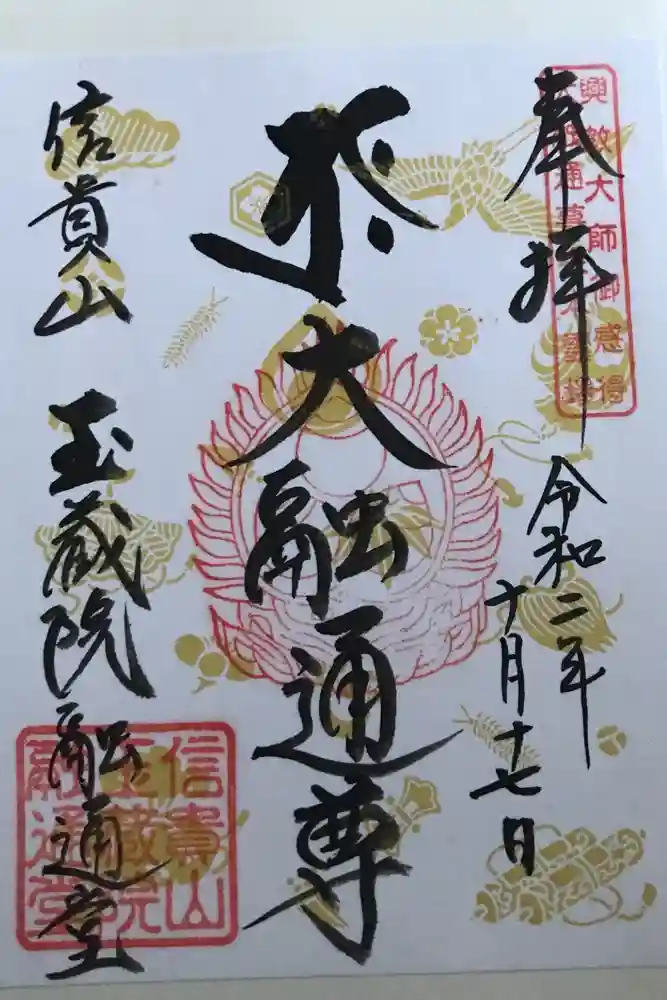 奉拝
興教大師御感得
令和二年
十月十七日
大融通尊
信貴山 玉蔵院融通堂
信貴山
玉藏院
融通堂